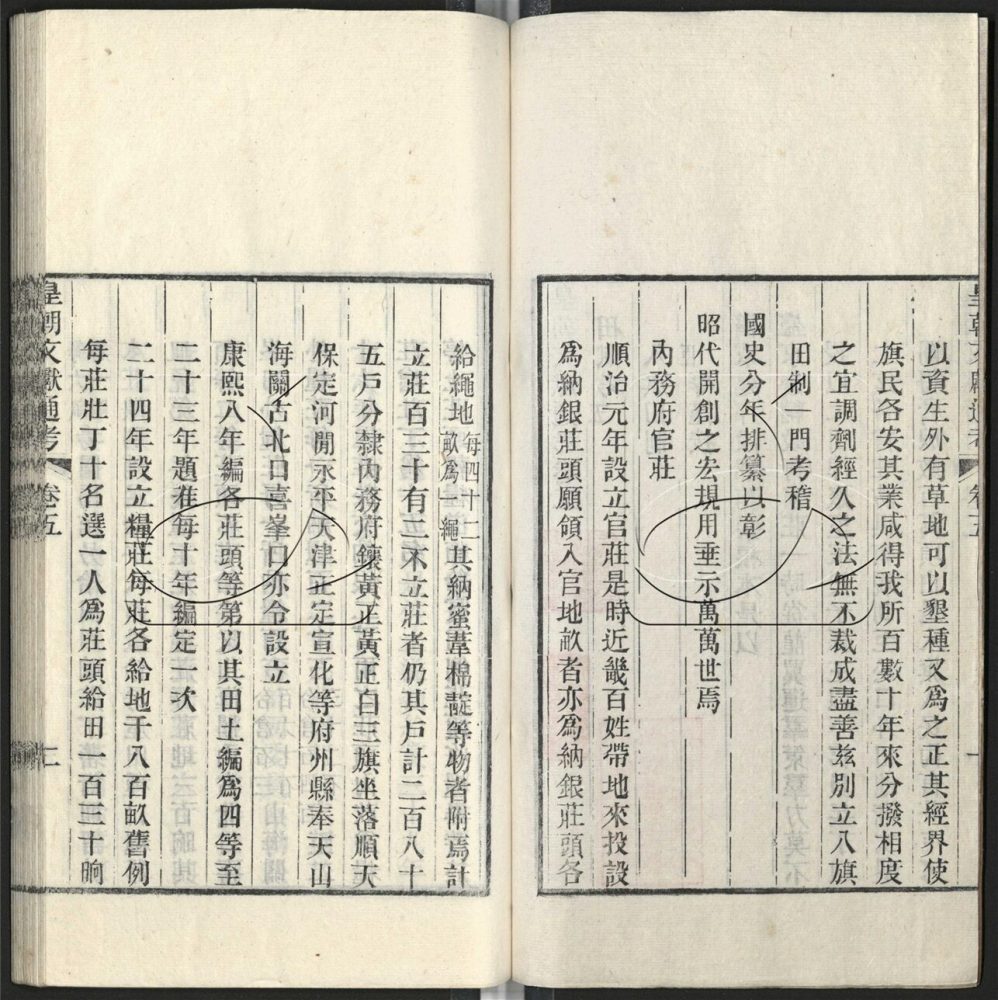 以資生外有草地可以墾種又爲之正其經界使
旗民各安其業咸得我所百數十年來分撥相度
之宜調劑經久之法無不裁成盡善茲別立八旗
田制一門考稽
國史分年排纂以彰
昭代開創之宏規用垂示萬萬世焉
內務府官莊
順治元年設立官莊是時近畿百姓帶地來投設
爲納銀莊頭願領入官地畝者亦爲納銀莊頭各
給繩地每四十二畝爲一繩其納蜜葦棉靛等物者附焉計
立莊百三十有二不立莊者仍其戶計二百八十
五戶分隸內務府鑲黃正黃正白三旗坐落順天
保定河閒永平天津正定宣化等府州縣奉天山
海關古北口喜峯口亦令設立
康熙八年編各莊頭等第以其田土編爲四等至
二十三年題准每十年編定一次
二十四年設立糧莊每莊各給地千八百畝舊例
每莊壯丁十名選一人爲莊頭給田一百三十晌
皇朝文獻通考 卷五 二